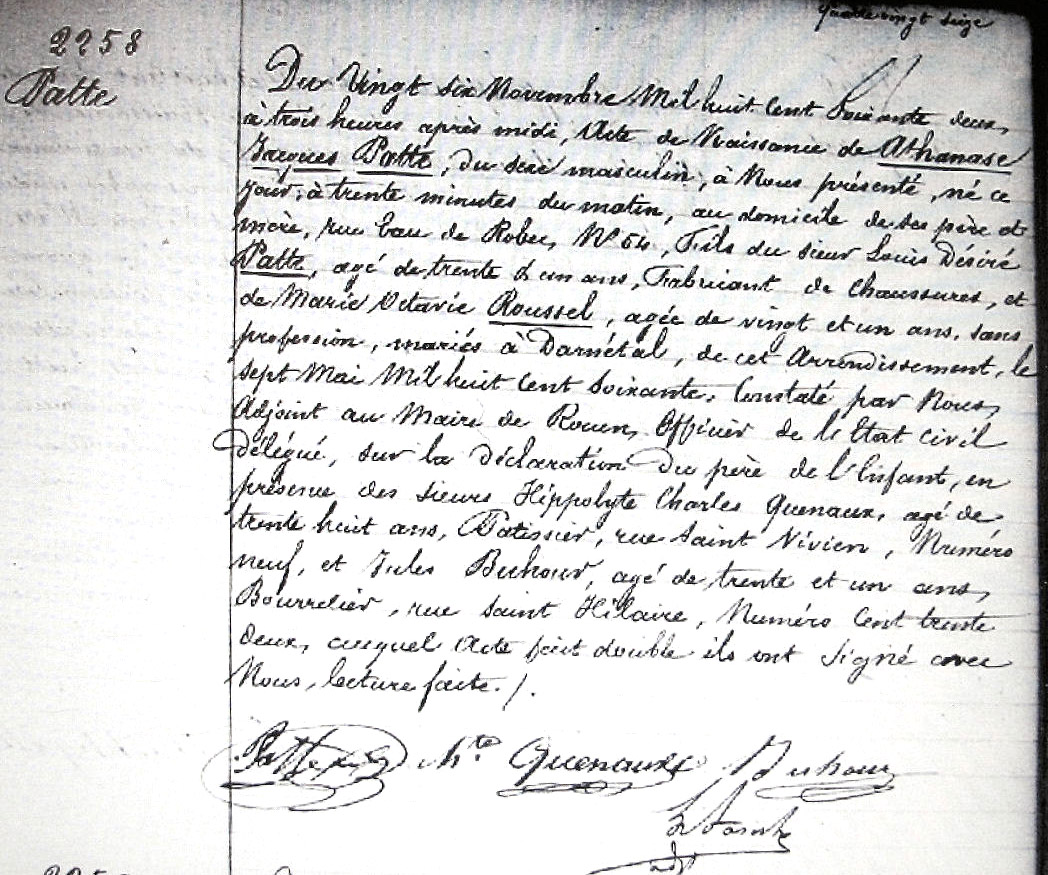 quatre vingt seize
2258
Patte
Du Vingt six Novembre Mil huit Cent Soixante deux,
à trois heures après midi, Acte de Naissance de Athanase
Jacques Patte, du sexe masculin, à Nous présenté, né ce
jour, à trente minutes du matin, au domicile de ses père et
mère, rue Eau de Robec, N° 54, Fils du sieur Louis Désiré
Patte, agé de trente & un ans, Fabricant de Chaussures, et
de Marie Octavie Roussel, agée de vingt et un ans, sans
profession, mariés à Darnétal, de cet Arrondissement, le
sept Mai Mil huit Cent Soixante. Constaté par Nous,
Adjoint au Maire de Rouen, Officier de l'Etat Civil
délégué, sur la Déclaration Du père de l'Enfant, en
présence des sieurs Hippolyte Charles Quenaux, agé de
trente huit ans, Patissier, rue Saint Vivien, Numéro
neuf, et Jules Buhour, agé de trente et un ans,
Bourrelier, rue Saint Hilaire, Numéro Cent trente
deux, auquel Acte fait double ils ont Signé avec
Nous, lecture faite. /.
Patte hte Quenaux Buhour
adjt
225